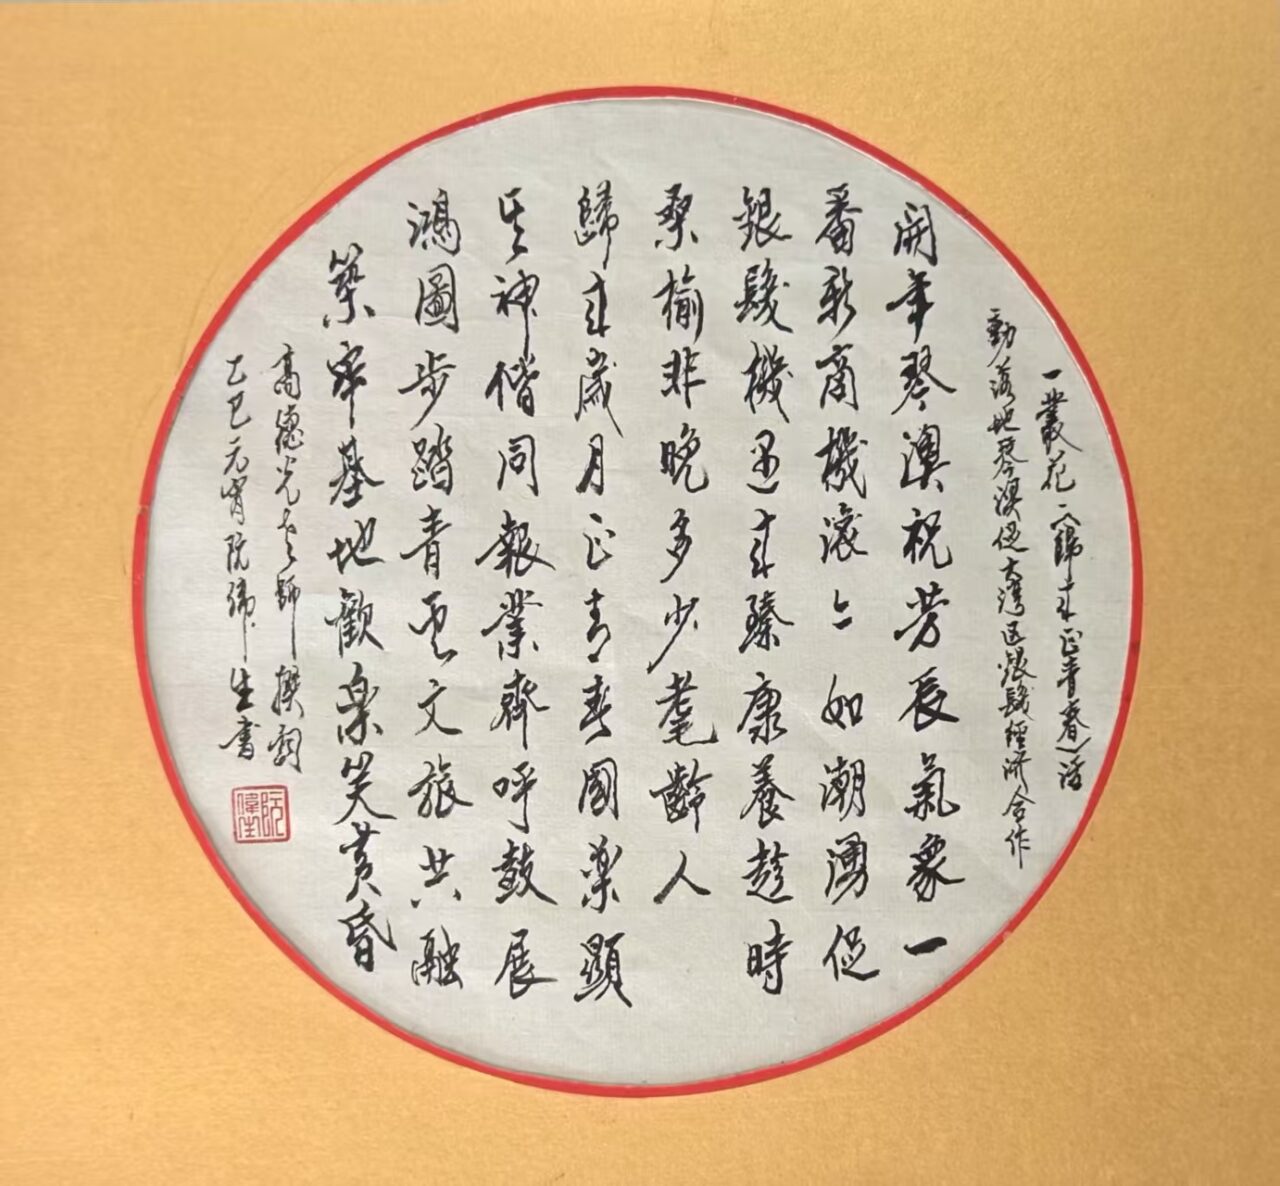 一叢花《歸來正青春》活
動落地琴澳促大湾区銀髮經济合作
開年琴澳祝芳辰氣象一
番新商機滾々如潮湧促
銀髮機遇來臻康養趁時
桑榆非晚多少耄齡人
歸來歲月正青春國樂顯
其神偕同報業齊呼鼓展
鴻圖步踏青雲文旅共融
築牢基地歡樂笑黃昏
高德光老師撰詞
乙巳元宵阮偉生書
阮偉生